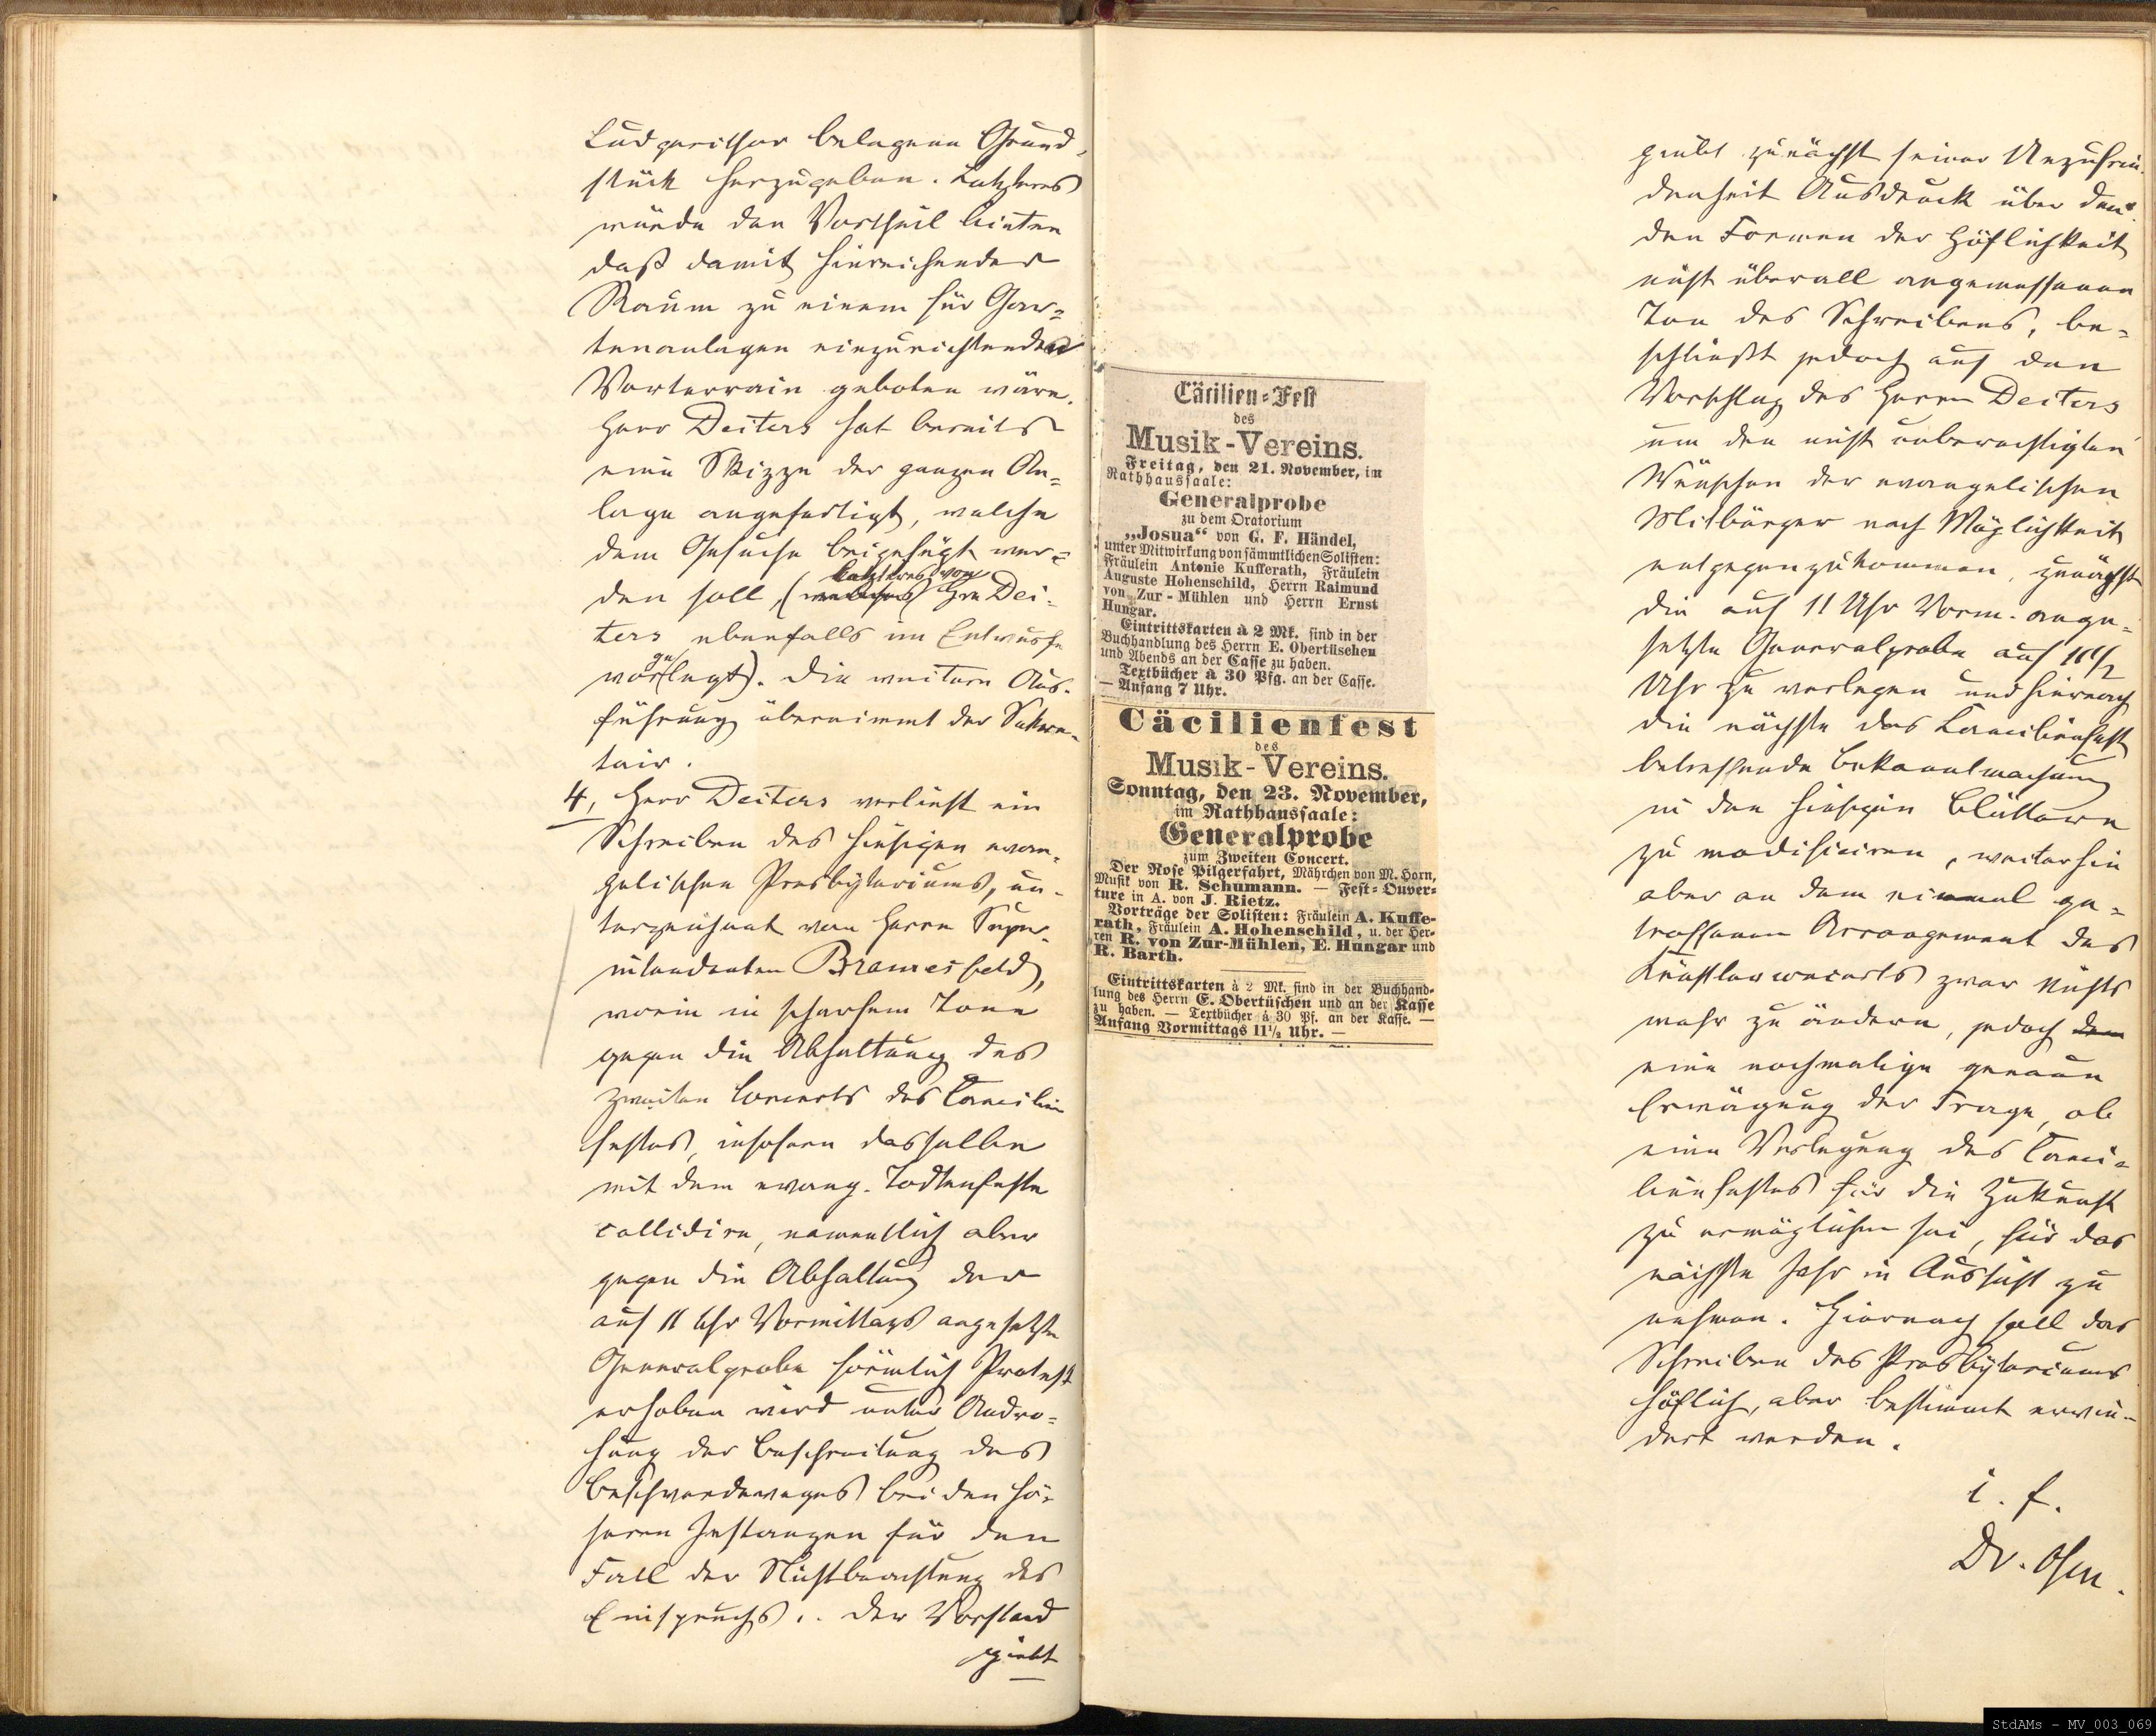 Ludgerithor belegene Grund-
stück herzugeben. Letzteres
würde den Vortheil bieten
daß damit hinreichender
Raum zu einem für Gar-
tenanlagen einzurichtenden
Vorterrain geboten wäre.
Herr Deiters hat bereits
eine Skizze der ganzen An-
lage angefertigt, welche
dem Gesuche beigefügt wer-
letzteres von
den soll, ( Hrn Dei-
ters ebenfalls im Entwurfe
vorgelegt). Die weitere Aus-
führung übernimmt der Sekre-
tair.
4, Herr Deiters verliest ein
Schreiben des hiesigen evan-
gelischen Presbyteriums, un-
terzeichnet von Herrn Super-
intendenten Brameesfeld,
worin in scharfem Tone
gegen die Abhaltung des
zweiten Concerts des Caecilien
festes, insofern dasselbe
mit dem evang. Todtenfeste
collidire, namentlich aber
gegen die Abhaltung der
auf 11 Uhr Vormittags angesetzten
Generalprobe förmlich Protest
erhoben wird unter Andro-
hung der Beschreitung des
Beschwerdeweges bei den hö-
heren Instanzen für den
Fall der Nichtbeachtung des
Einspruchs. Der Vorstand
giebt
Cäcilien-Fest
des
Musik-Vereins.
Freitag, den 21. November, im
Rathhaussaale:
Generalprobe
zu dem Oratorium
„Josua“ von G. F. Händel,
unter Mitwirkung von sämmtlichen Solisten:
Fräulein Antonie Kufferath, Fräulein
Auguste Hohenschild, Herrn Raimund
von Zur-Mühlen und Herrn Ernst
Hungar.
Eintrittskarten à 2 Mk. sind in der
Buchhandlung des Herrn E. Obertüschen
und Abends an der Casse zu haben.
Textbücher à 30 Pfg. an der Casse.
— Anfang 7 Uhr.
Cäcilienfest
des
Musik-Vereins.
Sonntag, den 23. November,
im Rathhaussaale:
Generalprobe
zum Zweiten Concert.
Der Rose Pilgerfahrt, Mährchen von M. Horn,
Musik von R. Schumann. — Fest-Ouver-
ture in A. von J. Rietz.
Vorträge der Solisten: Fräulein A. Kuffe-
rath, Fräulein A. Hohenschild, u. der Her-
ren R. von Zur-Mühlen, E. Hungar und
R. Barth.
Eintrittskarten à 2 Mk. sind in der Buchhand-
lung des Herrn E. Obertüschen und an der Kasse
zu haben. — Textbücher à 30 Pf. an der Kasse. —
Anfang Vormittags 11½ Uhr. —
giebt zunächst seiner Unzufrie-
denheit Ausdruck über den
den Formen der Höflichkeit
nicht überall angemessenen
Ton des Schreibens, be-
schließt jedoch auf den
Vorschlag des Herrn Deiters
um den nicht unberechtigten
Wünschen der evangelischen
Mitbürger nach Möglichkeit
entgegenzukommen, zunächst
die auf 11 Uhr Vorm. ange-
setzte Generalprobe auf 11½
Uhr zu verlegen und hiernach
die nächste das Caecilienfest
betreffende Bekanntmachung
in den hiesigen Blättern
zu modificiren, weiterhin
aber an dem einmal ge-
troffenen Arrangement des
Künstlerconcerts zwar Nichts
mehr zu ändern, jedoch
eine nochmalige genaue
Erwägung der Frage, ob
eine Verlegung des Caeci-
lienfestes für die Zukunft
zu ermöglichen sei, für das
nächste Jahr in Aussicht zu
nehmen. Hiernach soll das
Schreiben des Presbyteriums
höflich, aber bestimmt erwie-
dert werden.
i. f.
Dr. Ohm.
StdAMs - MV_003_069